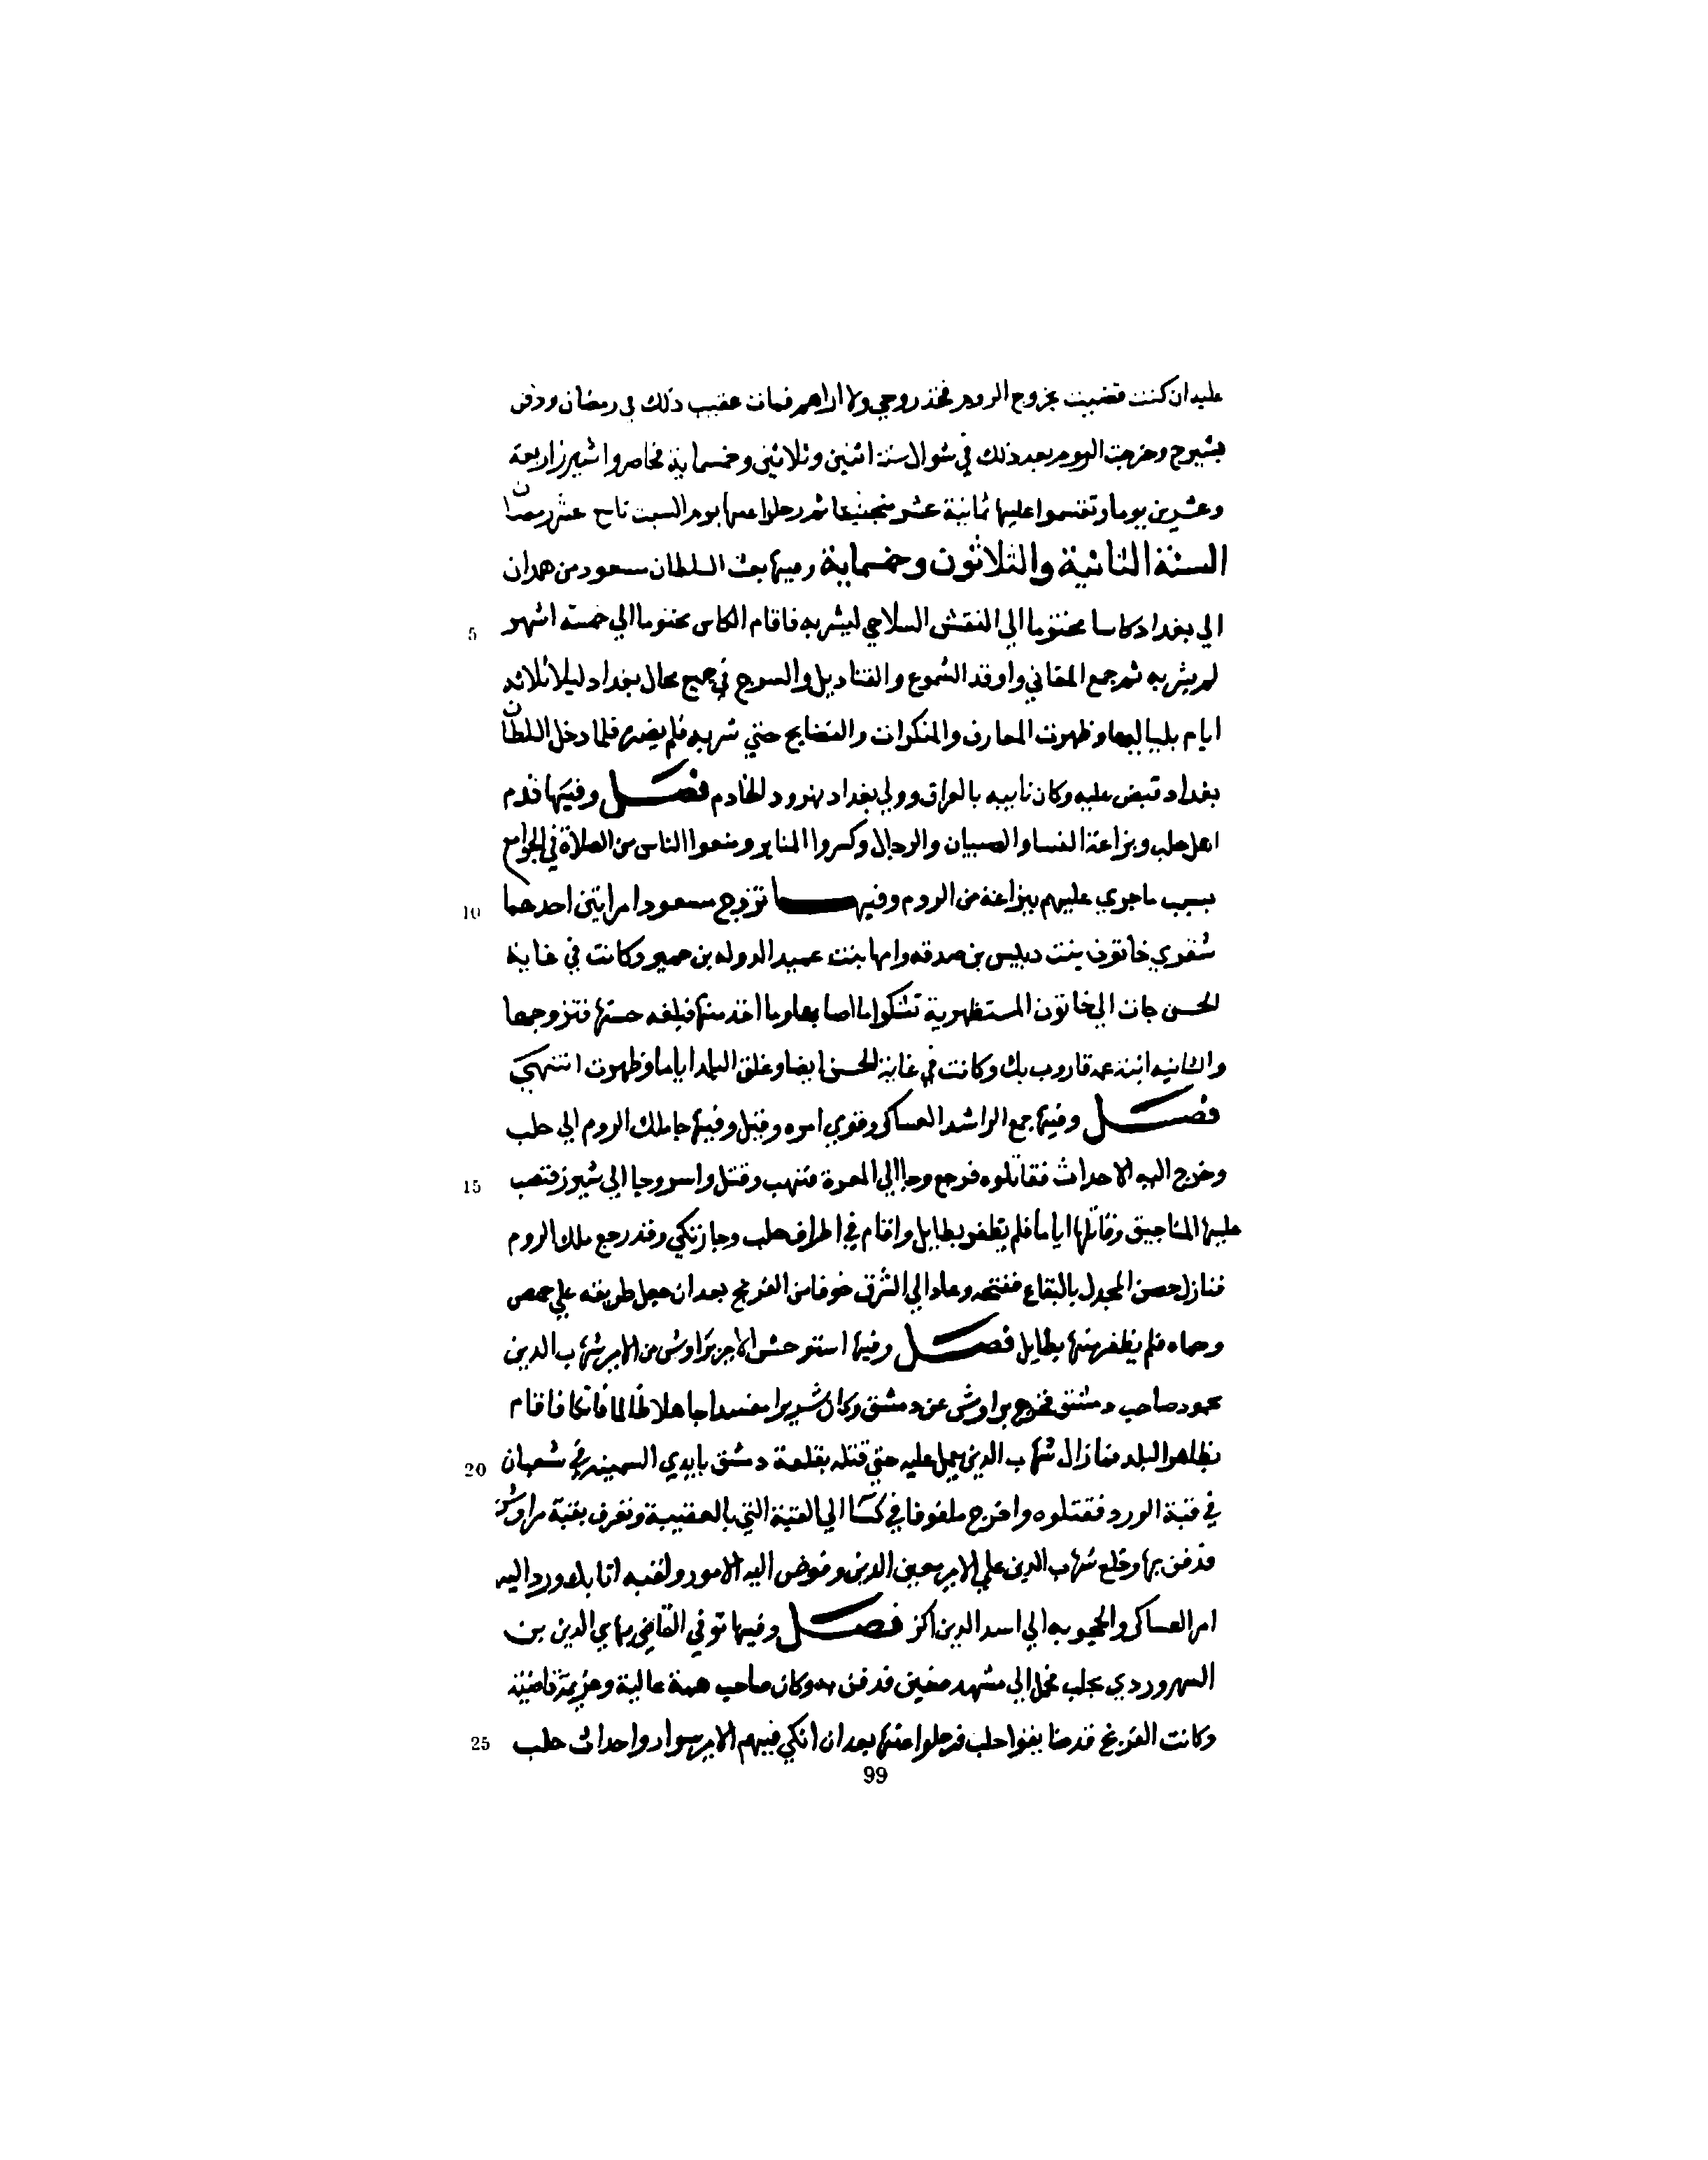 عليه ان كنت قضيت بخروج الروم فخذ روحي ولا اراهم فمات عقيب ذلك في رمضان ودفن
بشيرح وخرجت الروم بعد ذلك في شوال سنة اثنين وثلاثين وخمسماية فحاصروا شيزر اربعة
وعشرين يوما ونصبوا عليها ثمانية عشر منجنيقا ثم رحلوا عنها يوم السبت تاسع عشر رمضان
السنة الثانية والثلاثون وخمساية وفيها بعث السلطان مسعود من همدان
الي بغداد كاسا مختوما الي النقش السلاحي ليشربه فاقام الكاس مختوما الي خمسة اشهر 5
لم يشربه ثم جمع المغاني واوقد الشموع والقناديل والسرج في جميع محال بغداد ليلا ثلاثه
ايام بلياليها وظهرت المعازف والمنكرات والفضايح حتي شربه فلم يضره فلما دخل السلطان
بغداد قبض عليه وكان نايبه بالعراق وولي بغداد بهروز الخادم فصل وفيها قدم
اهل حلب وبزاعة النسا والصبيان والرجال وكسروا المنابر ومنعوا الناس من الصلاة في الجوامع
بسبب ما جري عليهم ببزاعة من الروم وفيها تزوج مسعود امراتين احدهما 10
سفري خاتون بنت دبيس بن صدقه وامها بنت عميد الدوله بن جهير وكانت في غاية
الحسن جات الي خاتون المستظهرية تشكوا ما اصابها وما اخذ منها فبلغه حسنها فتزوجها
والثانيه ابنة عمه قاروب بك وكانت في غاية الحسن ايضا وغلق البلد اياما وظهرت انتهي
فصل وفيها جمع الراشد العساكر وقوي امره وقتل وفيها جا ملك الروم الي حلب
وخرج اليه الاحداث فقاتلوه فرجع وجا الي المعرة فنهب وقتل واسر وجا الي شيزر فنصب 15
عليها المناجيق وقاتلها اياما فلم يظفر بطايل واقام في اطراف حلب وجا زنكي وقد رجع ملك الروم
فنازل حصن المجدل بالبقاع ففتحه وعاد الي الشرق خوفا من الفرنج بعد ان جعل طريقه علي حمص
وحماه فلم يظفر منها بطايل فصل وفيها استوحش الامير بزاوش من الامير شهاب الدين
محمود صاحب دمشق فخرج بزاوش عن دمشق وكان شريرا مفسدا جاهلا ظالما فاتكا فاقام
بظاهر البلد فما زال شهاب الدين يعمل عليه حتي قتله بقلعة دمشق بايدي الشمسيه في شعبان 20
في قبة الورد فقتلوه واخرج ملفوفا في كسا الي القبة التي بالعقيبة وتعرف بقبة بزاوش
فدفن بها وخلع شهاب الدين علي الامير معين الدين وفوض اليه الامور ولقبه اتابك ورد اليه
امر العساكر والحجوبه الي اسد الدين اكز فصل وفيها توفي القاضي بهاي الدين بن
السهروردي بحلب فحمل الي مشهد صفين فدفن به وكان صاحب همة عالية وعزيمة ماضية
وكانت الفرنج قد ضايقوا حلب فرحلوا عنها بعد ان انكي فيهم الامير سوار واحداث حلب 25
99